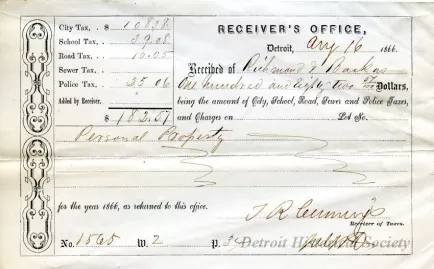 RECEIVER'S OFFICE,
Detroit, Aug 16 1866.
City Tax, . $ 108.38
School Tax, . 39.08
Road Tax, . 10.05
Sewer Tax, .
Police Tax, . 25 06
Added by Receiver.
$ 182.57
Received of Richmond & Backus
One hundred and eighty two 57/100 Dollars,
being the amount of City, School, Road, Sewer and Police Taxes,
and Charges on Lot No.
Personal Property
for the year 1866, as returned to this office.
Receiver of Taxes.
No. 1565 W. 2 P. 3
Detroit Historical Society